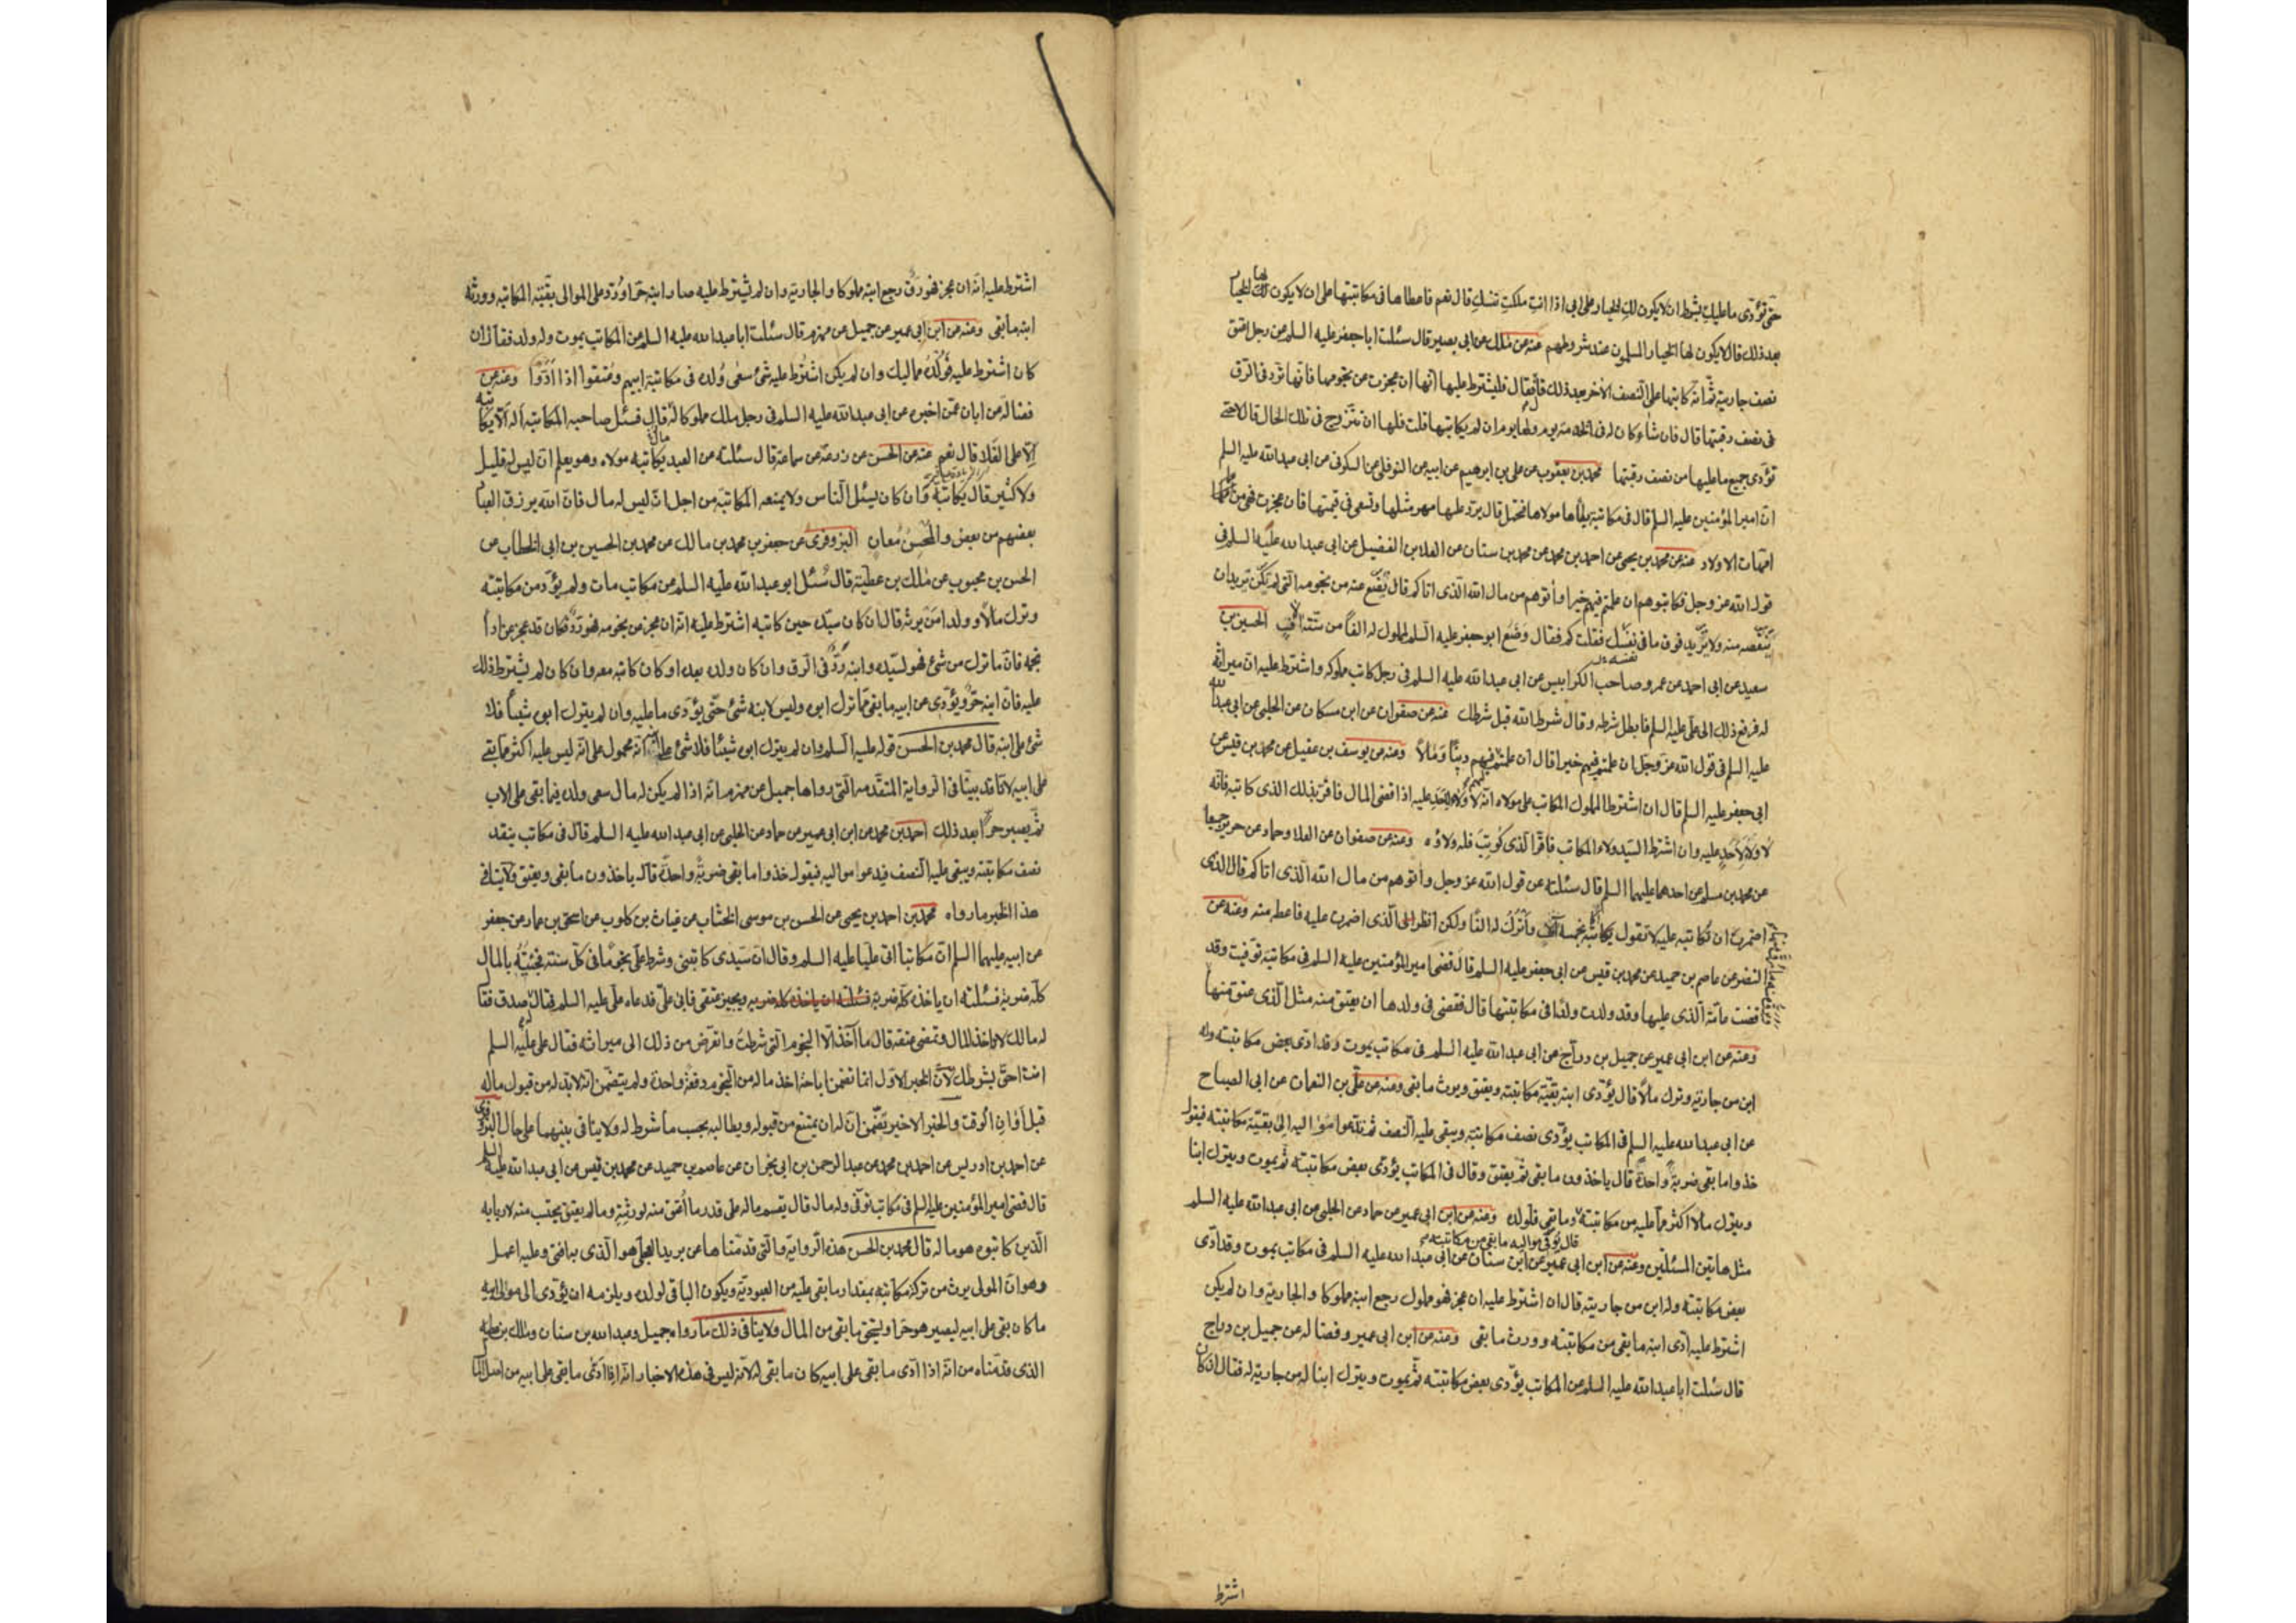 حتى تؤدى ما عليك بشرط ان لا يكون لك الخيار على ابى اذا انت ملكت نفسك قال نعم فاعطاها فى مكاتبتها على ان لا يكون لها الخيار
بعد ذلك قال لا يكون لها الخيار المسلمون عند شروطهم عنه عن ملك عن ابى بصير قال سئلت ابا جعفر عليه السلم عن رجل اعتق
نصف جاريته ثم انه كاتبها على النصف الاخر بعد ذلك قال فقال فليشترط عليها انها ان عجزت عن نجومها فانها ترد فى الرق
فى نصف رقبتها قال فان شاء كان له فى الخدمة يوم ولها يوم ان لم يكاتبها قلت فلها ان تتزوج فى تلك الحال قال لا حتى
تؤدى جميع ما عليها من نصف رقبتها محمد بن يعقوب عن على بن ابرهيم عن ابيه عن النوفلى عن السكونى عن ابى عبد الله عليه السلم
ان امير المؤمنين عليه السلم قال فى مكاتبة يطأها مولاها فتحبل قال يرد عليها مهر مثلها وتسعى فى قيمتها فان عجزت فهى من
امهات الاولاد عنه عن محمد بن يحيى عن احمد بن محمد عن محمد بن سنان عن العلا بن الفضيل عن ابى عبد الله عليه السلم فى
قول الله عز وجل فكاتبوهم ان علمتم فيهم خيرا وأتوهم من مال الله الذى اتاكم قال تضع عنه من نجومه التى لم تكن تريد ان
تنقصه منه ولا تزيد فوق ما فى نفسك فقلت كم فقال وضع ابو جعفر عليه السلم لمملوك له الفا من ستة الاف الحسين بن
سعيد عن ابى احمد عن عمرو صاحب الكرابيس عن ابى عبد الله عليه السلم فى رجل كاتب مملوكه واشترط عليه ان ميراثه
له فرفع ذلك الى على عليه السلم فابطل شرطه وقال شرط الله قبل شرطك عنه عن صفوان عن ابن مسكان عن الحلبى عن ابى عبد الله
عليه السلم فى قول الله عز وجل ان علمتم فيهم خيرا قال ان علمتم فيهم دينا ومالا ومنه عن يوسف بن عقيل عن محمد بن قيس عن
ابى جعفر عليه السلم قال ان اشترط المملوك المكاتب على مولاه انه لا ولاء لاحد عليه اذا قضى المال فاقر بذلك الذى كاتبه فانه
لا ولاء لاحد عليه وان اشترط السيد ولاء المكاتب فاقر الذى كوتب فله ولاؤه ومنه عن صفوان عن العلا وحماد عن حريز جميعا
عن محمد بن مسلم عن احدهما عليهما السلم قال سئلته عن قول الله عز وجل وأتوهم من مال الله الذى اتاكم قال الذى
اضمرت ان تكاتبه عليه لا تقول يكاتبه بخمسة آلاف وأترك له الفا ولكن انظر الى الذى اضمرت عليه فاعطه منه ومنه عن
النضر عن عاصم بن حميد عن محمد بن قيس عن ابى جعفر عليه السلم قال قضى امير المؤمنين عليه السلم فى مكاتبة توفيت وقد
قضت عامة الذى عليها وقد ولدت ولدا فى مكاتبتها قال فقضى فى ولدها ان يعتق منه مثل الذى عتق منها
ومنه عن ابن ابى عمير عن جميل بن دراج عن ابى عبد الله عليه السلم فى مكاتب يموت وقد ادى بعض مكاتبته وله
ابن من جاريته وترك مالا قال يؤدى ابنه بقية مكاتبته ويعتق ويورث ما بقى ومنه عن على بن النعمان عن ابى الصباح
عن ابى عبد الله عليه السلم فى المكاتب يؤدى نصف مكاتبته ويبقى عليه النصف ثم يدعوا مواليه الى بقية مكاتبته فيقول
خذوا ما بقى ضربة واحدة قال ياخذون ما بقى ثم يعتق وقال فى المكاتب يؤدى بعض مكاتبته ثم يموت ويترك ابنا
ويترك مالا اكثر مما عليه من مكاتبته قال يوفى مواليه ما بقى من مكاتبته وما بقى فلولده ومنه عن ابن ابى عمير عن حماد عن الحلبى عن ابى عبد الله عليه السلم
مثل هاتين المسئلتين ومنه عن ابن ابى عمير عن ابن سنان عن ابى عبد الله عليه السلم فى مكاتب يموت وقد ادى
بعض مكاتبته وله ابن من جاريته قال ان اشترط عليه ان عجز فهو مملوك رجع ابنه مملوكا والجارية وان لم يكن
اشترط عليه ادى ابنه ما بقى من مكاتبته وورث ما بقى ومنه عن ابن ابى عمير وفضالة عن جميل بن دراج
قال سئلت ابا عبد الله عليه السلم عن المكاتب يؤدى بعض مكاتبته ثم يموت ويترك ابنا له من جارية له فقال ان كان
اشترط
اشترط عليه انه ان عجز فهو رق رجع ابنه مملوكا والجارية وان لم يشترط عليه صار ابنه حرا ورد على الموالى بقية المكاتبة وورثه
ابنه ما بقى ومنه عن ابن ابى عمير عن جميل عن مهزم قال سئلت ابا عبد الله عليه السلم عن المكاتب يموت وله ولد فقال ان
كان اشترط عليه فولده مماليك وان لم يكن اشترط عليه شئ سعى ولده فى مكاتبة ابيهم وعتقوا اذا ادوا ومنه عن
فضالة عن ابان عمن اخبره عن ابى عبد الله عليه السلم فى رجل ملك مملوكا له مال فسئل صاحبه المكاتبة أله ألا يكاتبه
الا على الغلاء قال نعم عنه عن الحسن عن زرعة عن سماعة قال سئلته عن العبد يكاتبه مولاه وهو يعلم ان ليس له قليل
ولا كثير قال يكاتبه وان كان يسئل الناس ولا يمنعه المكاتبة من اجل ان ليس له مال فان الله يرزق العباد
بعضهم من بعض والمحسن معان البزوفرى عن جعفر بن محمد بن مالك عن محمد بن الحسين بن ابى الخطاب عن
الحسن بن محبوب عن ملك بن عطية قال سئل ابو عبد الله عليه السلم عن مكاتب مات ولم يؤد من مكاتبته
وترك مالا وولدا من يرثه قال ان كان سيده حين كاتبه اشترط عليه انه ان عجز عن نجومه فهو رد فكان قد عجز عن اداء
نجمه فان ما ترك من شئ فهو لسيده وابنه رد فى الرق وان كان ولده بعده او كان كاتبه معه وان كان لم يشترط ذلك
عليه فان ابنه حر ويؤدى عن ابيه ما بقى مما ترك ابوه وليس لابنه شئ حتى يؤدى ما عليه وان لم يترك ابوه شيئا فلا
شئ على ابنه قال محمد بن الحسن قوله عليه السلم وان لم يترك ابوه شيئا فلا شئ على ابنه انه محمول على انه ليس عليه اكثر مما بقى
على ابيه لانا قد بينا فى الرواية المتقدمه التى رواها جميل عن مهزم انه اذا لم يكن له مال سعى ولده فيما بقى على الاب
ثم يصير حرا بعد ذلك احمد بن محمد عن ابن ابى عمير عن حماد عن الحلبى عن ابى عبد الله عليه السلم قال فى مكاتب ينقد
نصف مكاتبته ويبقى عليه النصف فيدعوا مواليه فيقول خذوا ما بقى ضربة واحدة قال ياخذون ما بقى ويعتق ولا ينافى
هذا الخبر ما رواه محمد بن احمد بن يحيى عن الحسن بن موسى الخشاب عن غياث بن كلوب عن اسحق بن عمار عن جعفر
عن ابيه عليهما السلم ان مكاتبا اتى عليا عليه السلم وقال ان سيدى كاتبنى وشرط على نجوما فى كل سنة فجئته بالمال
كله ضربة فسئلته ان ياخذه كله ضربة فسئلته ان ياخذه كله ضربه ويجيز عتقى فابى على فدعاه على عليه السلم فقال صدق فقال
له مالك لا تاخذ المال وتمضى عتقه قال ما آخذ الا النجوم التى شرطت واتعرض من ذلك الى ميراثه فقال على عليه السلم
انت احق بشرطك لان الخبر الاول انما تضمن اباحة اخذ ماله من النجوم دفعة واحدة ولم يتضمن انه لا بد له من قبول ماله
قبل اوان الوقت والخبر الاخير تضمن ان له ان يمتنع من قبوله ويطالبه بحسب ما شرط له ولا ينافى بينهما على حال البزوفرى
عن احمد بن ادريس عن احمد بن محمد عن عبد الرحمن بن ابى نجران عن عاصم بن حميد عن محمد بن قيس عن ابى عبد الله عليه السلم
قال قضى امير المؤمنين عليه السلم فى مكاتب توفى وله مال قال يقسم ماله على قدر ما اعتق منه لورثته وما لم يعتق يحتسب منه لاربابه
الذين كاتبوه هو ماله قال محمد بن الحسن هذه الرواية والتى قدمناها عن بريد العجلى هو الذى به افتى وعليه اعمل
وهو ان المولى يرث من تركة مكاتبه بمقدار ما بقى عليه من العبودية ويكون الباقى لولده ويلزمه ان يؤدى الى موالى ابيه
ما كان بقى على ابيه ليصير هو حرا ويستحق ما بقى من المال ولا ينافى ذلك ما رواه جميل وعبد الله بن سنان وملك بن عطية
الذى قدمناه من انه اذا ادى ما بقى على ابيه كان ما بقى له لانه ليس فى هذه الاخبار انه اذا ادى ما بقى على ابيه من اصل المال